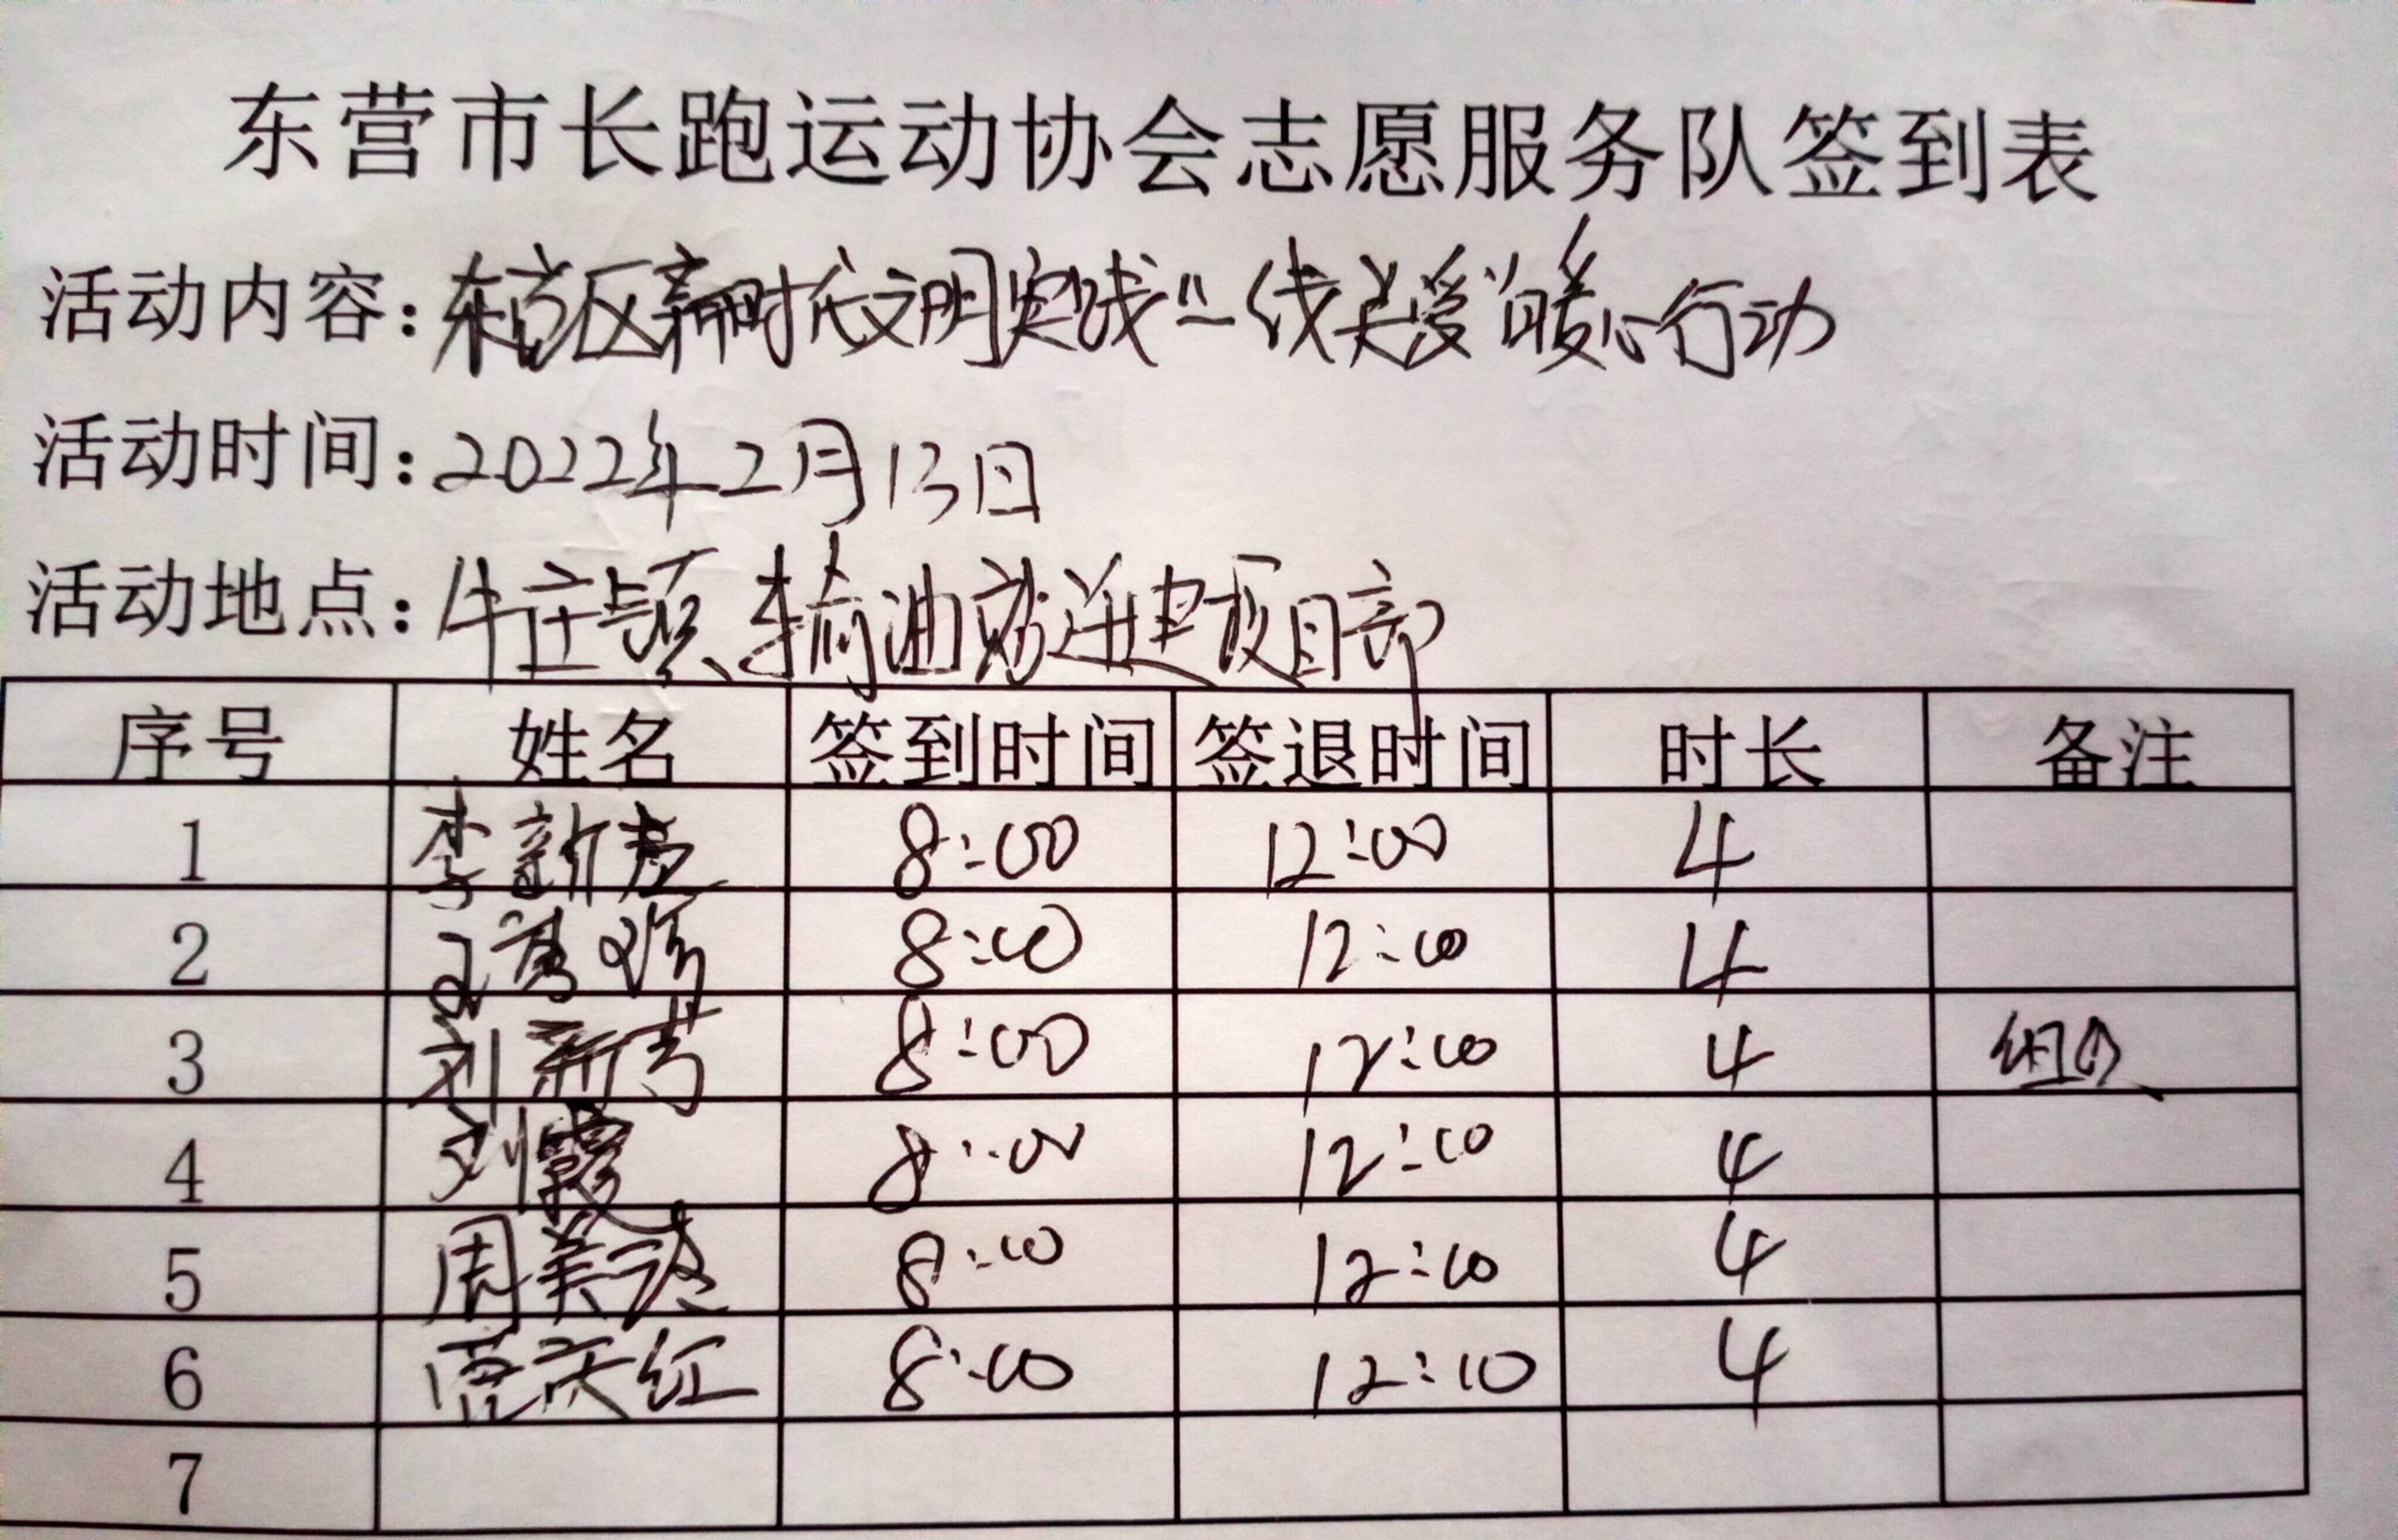 东营市长跑运动协会志愿服务队签到表
活动内容：东营区新时代文明实践"一线关爱"暖心行动
活动时间：2022年2月13日
活动地点：牛庄镇输油站迁建项目部
序号 姓名 签到时间 签退时间 时长 备注
1 李新 8:00 12:00 4
2 8:00 12:00 4
3 刘新芳 8:00 12:00 4 组织
4 刘霞 8:00 12:00 4
5 周美 8:00 12:00 4
6 庆红 8:00 12:00 4
7